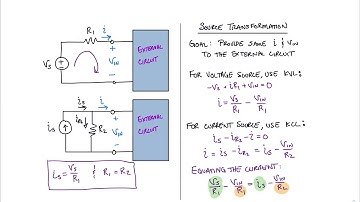 R₁
i
+
V_IN
-
V_S
+
-
EXTERNAL
CIRCUIT
i_S
i
i_R2
R₂
+
V_IN
-
i_S
EXTERNAL
CIRCUIT
i_S = V_S/R₁ & R₁ = R₂
SOURCE TRANSFORMATION
GOAL: PROVIDE SAME i & V_IN
TO THE EXTERNAL CIRCUIT
FOR VOLTAGE SOURCE, USE KVL:
-V_S + iR₁ + V_IN = 0
i = V_S/R₁ - V_IN/R₁
FOR CURRENT SOURCE, USE KCL:
i_S - i_R2 - i = 0
i = i_S - i_R2 = i_S - V_IN/R₂
EQUATING THE CURRENT:
V_S/R₁ - V_IN/R₁ = i_S - V_IN/R₂